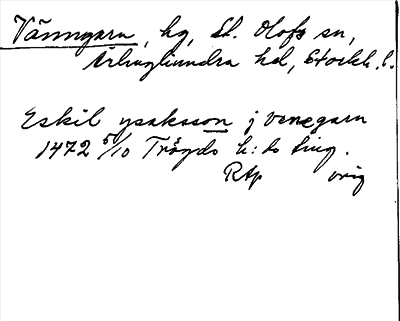 Vänngarn, hg, St. Olofs sn,
Ärlinghundra hd, Stockh. l.
Eskil ysaksson j venegarn
1472 5/10 Trögds h:ds ting.
RAp orig